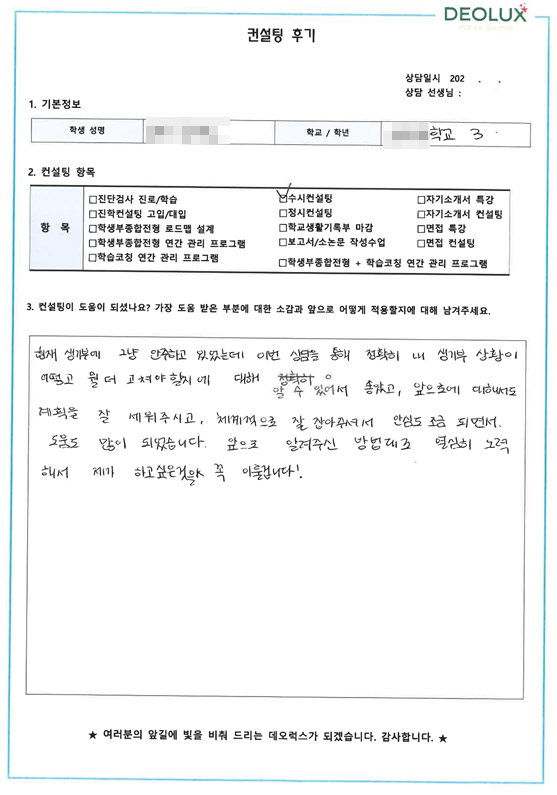 DEOLUX
컨설팅 후기
상담일시 202 . .
상담 선생님 :
1. 기본정보
학생 성명
학교 / 학년
학교 3
2. 컨설팅 항목
항 목
□진단검사 진로/학습
□수시컨설팅
□자기소개서 특강
□진학컨설팅 고입/대입
□정시컨설팅
□자기소개서 컨설팅
□학생부종합전형 로드맵 설계
□학교생활기록부 마감
□면접 특강
□학생부종합전형 연간 관리 프로그램
□보고서/소논문 작성수업
□면접 컨설팅
□학습코칭 연간 관리 프로그램
□학생부종합전형 + 학습코칭 연간 관리 프로그램
3. 컨설팅이 도움이 되셨나요? 가장 도움 받은 부분에 대한 소감과 앞으로 어떻게 적용할지에 대해 남겨주세요.
현재 생기부에 그냥 안주하고 있었는데 이번 상담을 통해 정확히 내 생기부 상황이
어떻고 뭘 더 고쳐야 할지에 대해 정확히
알 수 있어서 좋았고, 앞으로에 대해서도
계획을 잘 세워주시고, 체계적으로 잘 잡아주셔서 안심도 조금 되면서
도움도 많이 되었습니다. 앞으로 알려주신 방법대로 열심히 노력
해서 제가 하고싶은것을 꼭 이룰겁니다!
★ 여러분의 앞길에 빛을 비춰 드리는 데오럭스가 되겠습니다. 감사합니다. ★